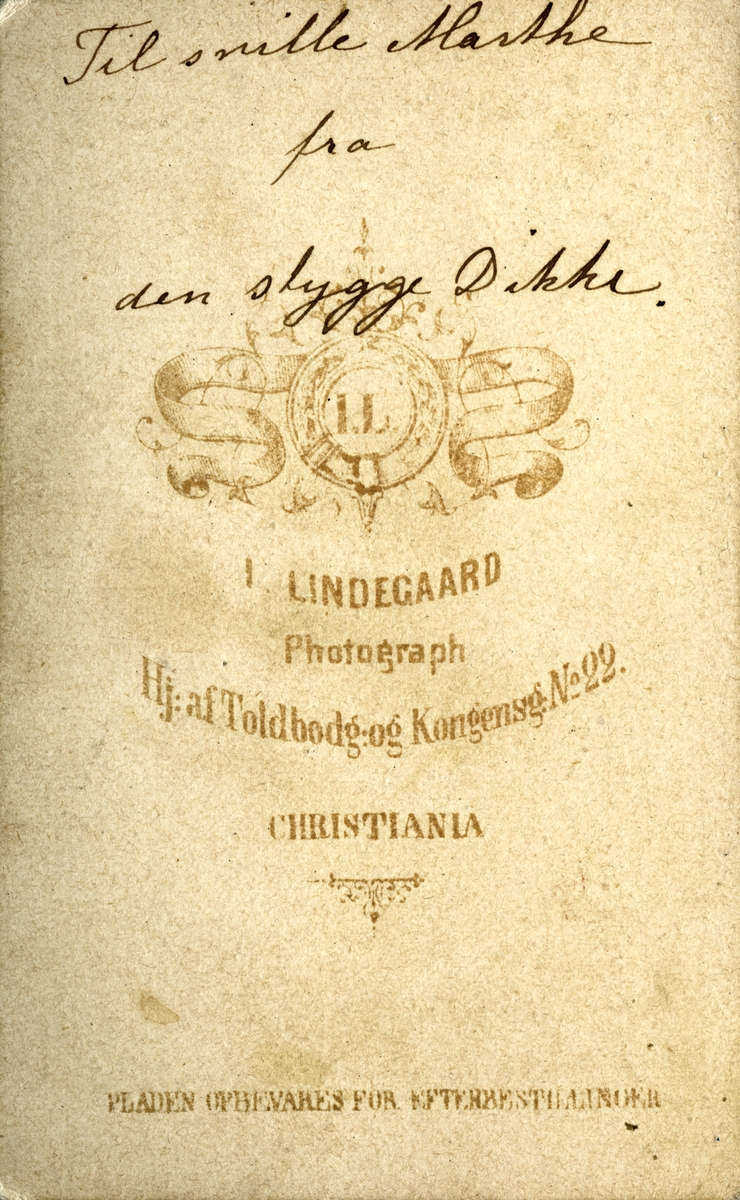 Til snille Marthe
fra
den stygge Dikke.
I.L.
I. LINDEGAARD
Photograph
Hj: af Toldbodg: og Kongensg: No 22.
CHRISTIANIA
PLADEN OPBEVARES FOR EFTERBESTILLINGER